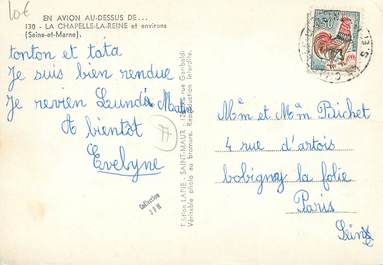 10€
EN AVION AU-DESSUS DE...
130 - LA CHAPELLE-LA-REINE et environs
(Seine-et-Marne).
tonton et tata
Je suis bien rendue
Je revien Lundi Matin
A bientôt
Evelyne
77
Collection
Edition LAPIE - SAINT-MAUR - rue Garibaldi
Véritable photo au bromure. Reproduction interdite.
Mem et Mam Buchet
4 rue d'artois
bobignay la folie
Paris
Seine